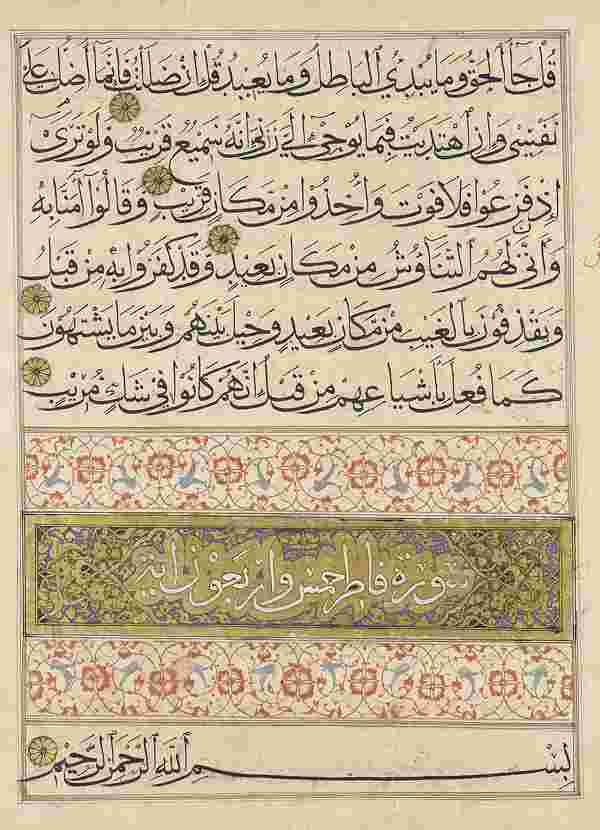 قُلْ جَآءَ الْحَقُّ وَمَا يُبْدِئُ الْبَاطِلُ وَمَا يُعِيدُ قُلْ اِنْ ضَلَلْتُ فَاِنَّمَآ اَضِلُّ عَلٰى
نَفْسِي وَاِنِ اهْتَدَيْتُ فَبِمَا يُوحِيٓ اِلَيَّ رَبِّي اِنَّهُ سَمِيعٌ قَرِيبٌ وَلَوْ تَرٰىٓ
اِذْ فَزِعُوا فَلَا فَوْتَ وَاُخِذُوا مِنْ مَكَانٍ قَرِيبٍ وَقَالُوٓا اٰمَنَّا بِهِ
وَاَنّٰى لَهُمُ التَّنَاوُشُ مِنْ مَكَانٍ بَعِيدٍ وَقَدْ كَفَرُوا بِهِ مِنْ قَبْلُ
وَيَقْذِفُونَ بِالْغَيْبِ مِنْ مَكَانٍ بَعِيدٍ وَحِيلَ بَيْنَهُمْ وَبَيْنَ مَا يَشْتَهُونَ
كَمَا فُعِلَ بِاَشْيَاعِهِمْ مِنْ قَبْلُ اِنَّهُمْ كَانُوا فِي شَكٍّ مُرِيبٍ
سورة فاطر خمس واربعون اية
بِسْمِ اللّٰهِ الرَّحْمٰنِ الرَّحِيمِ